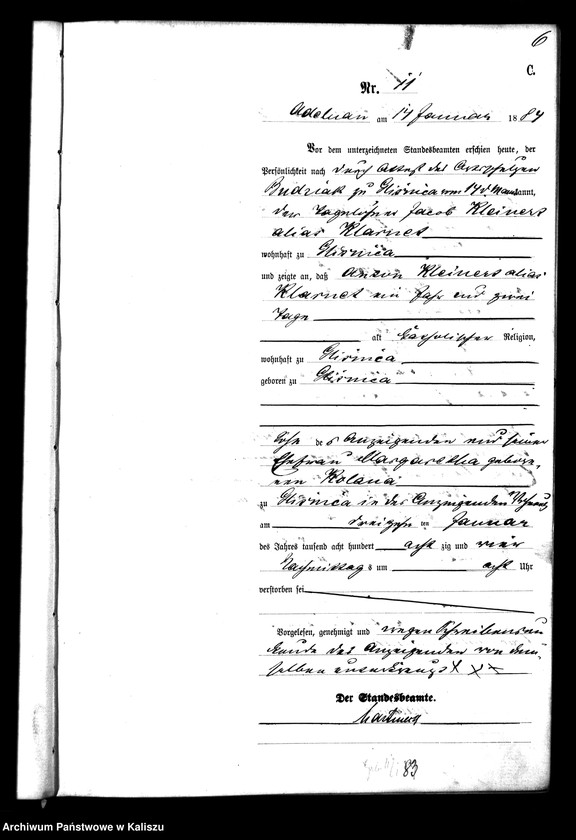 6
C.
Nr. 11
Adelnau am 14 Januar 1884
Vor dem unterzeichneten Standesbeamten erschien heute, der
Persönlichkeit nach durch Attest des Ortsschulzen
Budziak zu Gliśnica vom 14 d. Mts. kannt,
der Tagelöhner Jacob Kleinert
alias Klarnet
wohnhaft zu Gliśnica
und zeigte an, daß Anton Kleinert alias
Klarnet ein Jahr und zwei
Tage
alt katholischer Religion,
wohnhaft zu Gliśnica
geboren zu Gliśnica
Sohn des Anzeigenden und seiner
Ehefrau Margaretha gebore-
nen Kolana
zu Gliśnica in des Anzeigenden Wohnung
am dreizehnten Januar
des Jahres tausend acht hundert achtzig und vier
Nachmittags um acht Uhr
verstorben sei
Vorgelesen, genehmigt und wegen Schreibensun
kunde des Anzeigenden von dem-
selben unterkreuzt XXX
Der Standesbeamte.
83
Archiwum Państwowe w Kaliszu